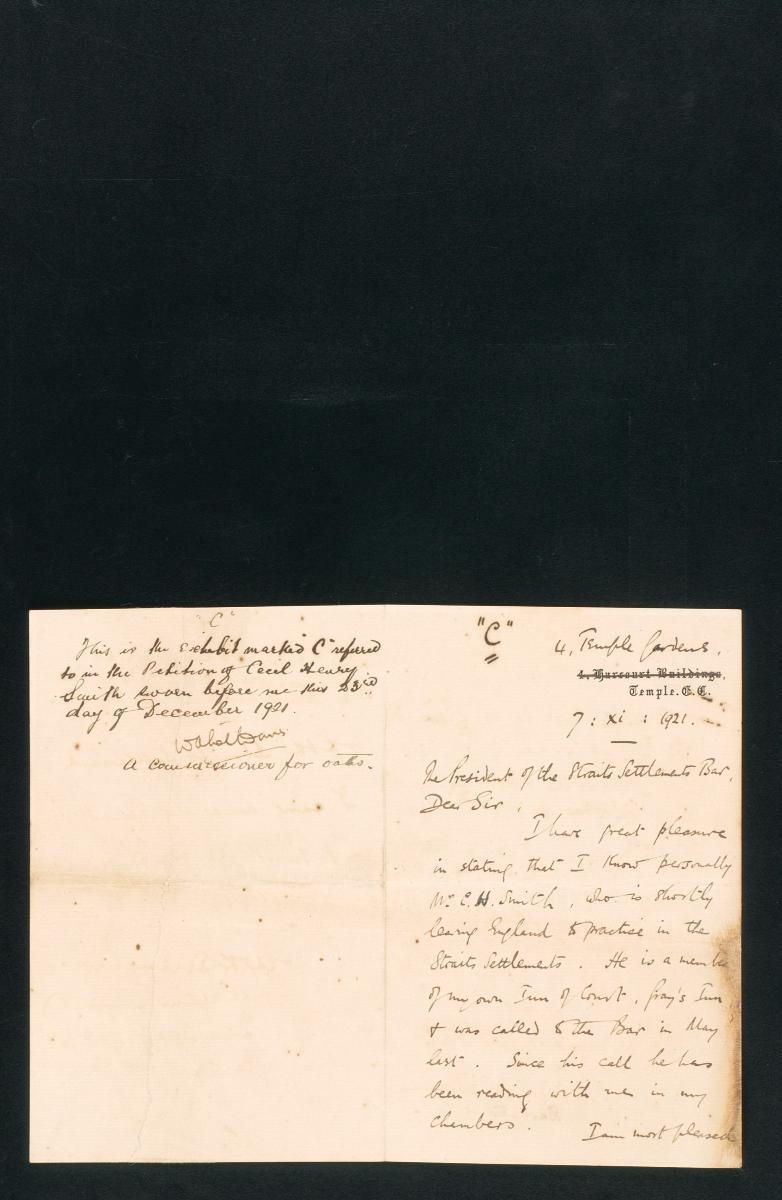 "C"
This is the exhibit marked C referred
to in the Petition of Cecil Henry
Smith sworn before me this 23rd
day of December 1921.
A commissioner for oaths.
"C"
4, Temple Gardens,
4. Harcourt Buildings,
Temple. E.C.
7 : xi : 1921.
The President of the Straits Settlements Bar,
Dear Sir,
I have great pleasure
in stating that I know personally
Mr C. H. Smith, who is shortly
leaving England to practise in the
Straits Settlements. He is a member
of my own Inn of Court, Gray's Inn,
& was called to the Bar in May
last. Since his call he has
been reading with me in my
chambers.
I am most pleased